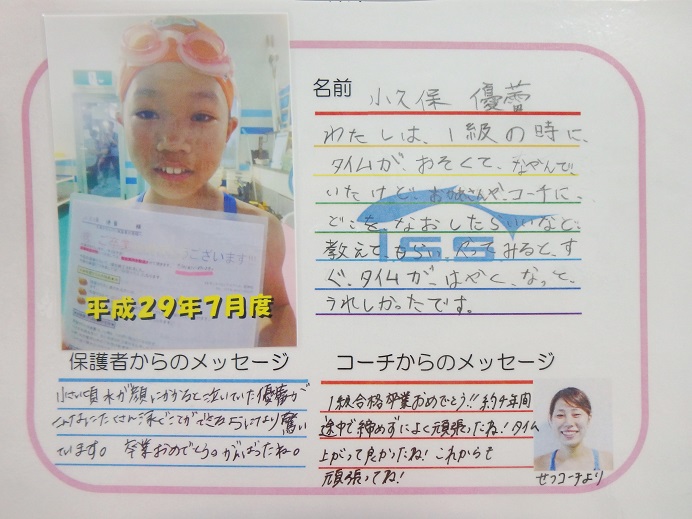 名前 小久保 優蕾
わたしは、1級の時に、
タイムが、おそくて、なやんで、
いたけど、お母さんや、コーチに、
どこを、なおしたらいいなど、
教えて、もらい、やってみると、す
ぐ、タイムが、はやく、なって、
うれしかったです。
ISS
ございます!!!
平成29年7月度
保護者からのメッセージ
小さい頃水が顔にかかると泣いていた優蕾が
こんなにたくさん泳ぐことができる
ています。 卒業おめでとう。がんばったね。
コーチからのメッセージ
1級合格卒業おめでとう!!約4年間
途中で締めずによく頑張ったね!タイム
上がって良かったね!これからも
頑張ってね!
せつコーチより